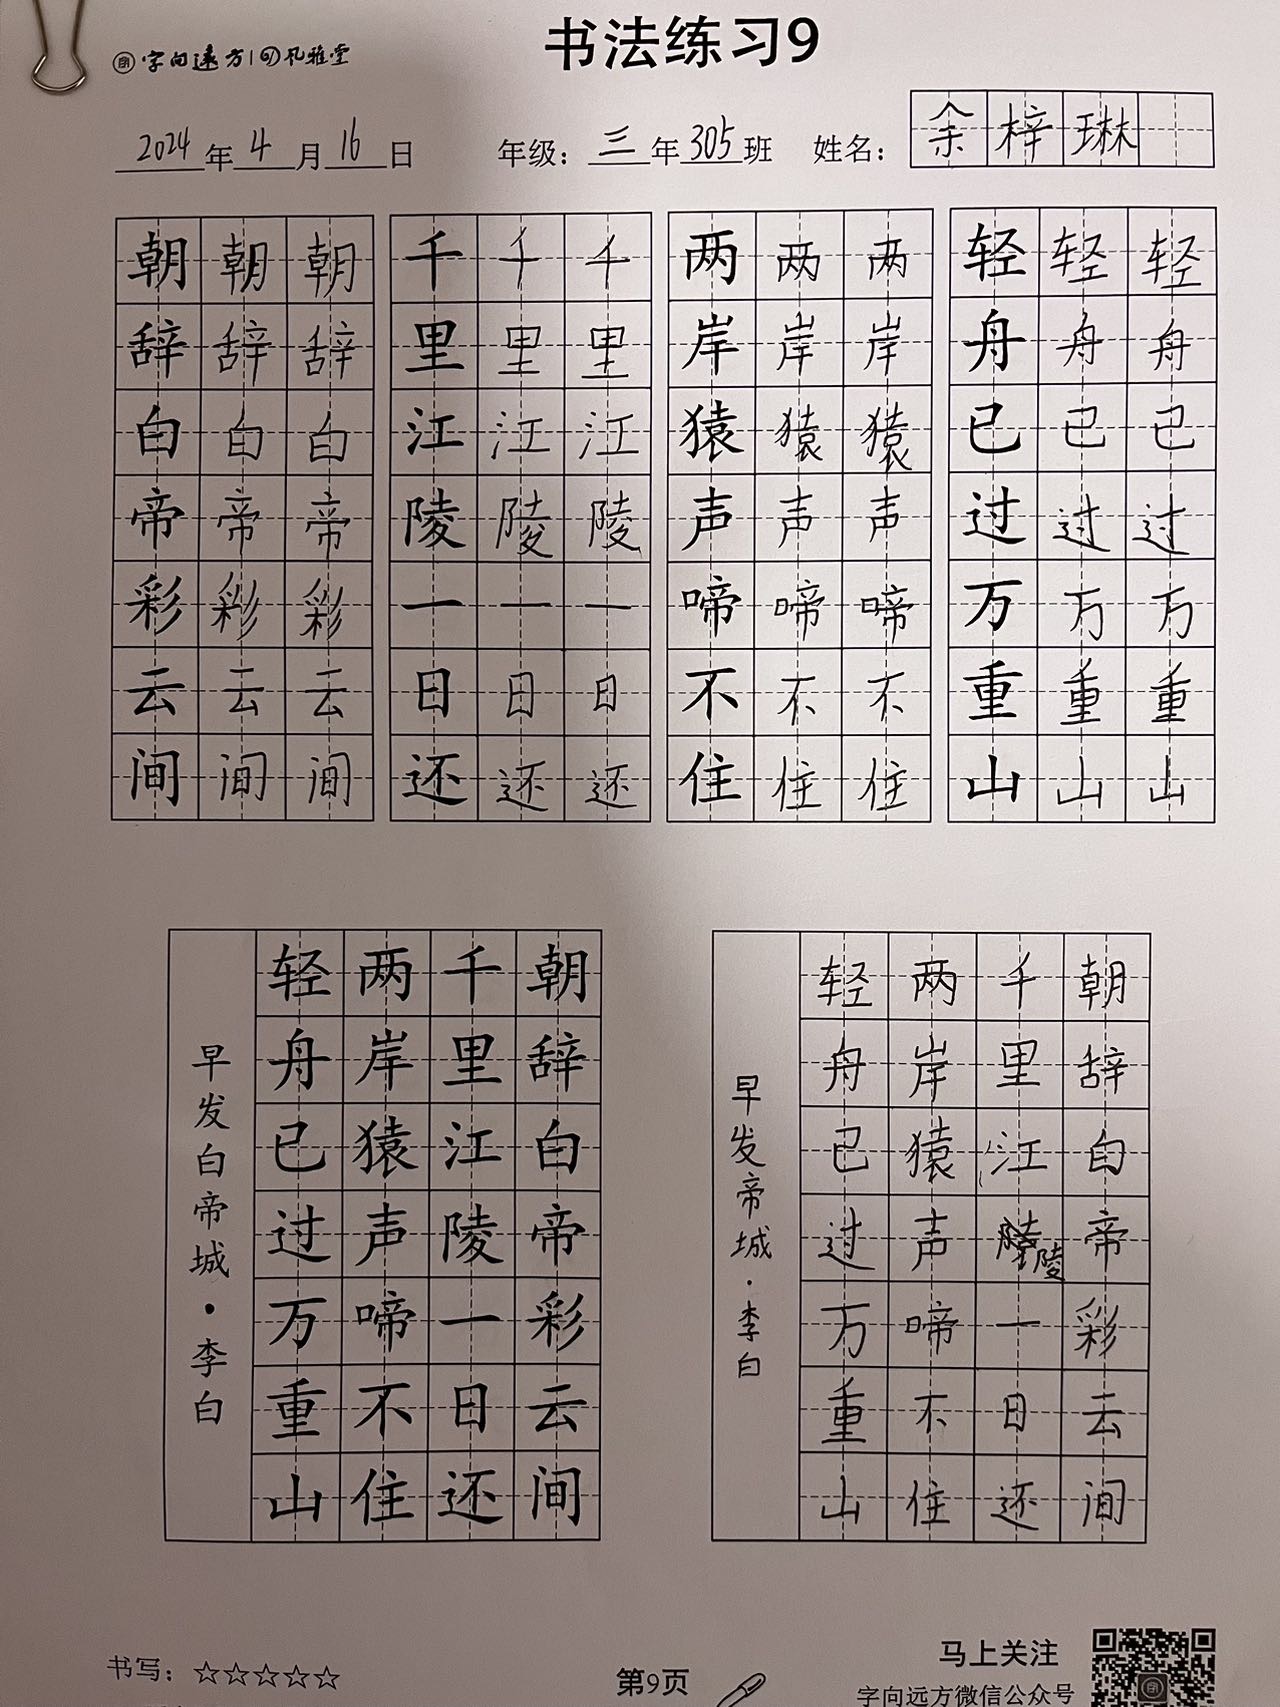 字向远方 凡雅堂
书法练习9
2024年4月16日 年级：三年305班 姓名：余梓琳
朝朝朝 千千千 两两两 轻轻轻
辞辞辞 里里里 岸岸岸 舟舟舟
白白白 江江江 猿猿猿 已已已
帝帝帝 陵陵陵 声声声 过过过
彩彩彩 一一一 啼啼啼 万万万
云云云 日日日 不不不 重重重
间间间 还还还 住住住 山山山
朝辞白帝彩云间
千里江陵一日还
两岸猿声啼不住
轻舟已过万重山
早发白帝城·李白
朝辞白帝彩云间
千里江陵一日还
两岸猿声啼不住
轻舟已过万重山
早发帝城·李白
书写：☆☆☆☆☆
第9页
马上关注
字向远方微信公众号